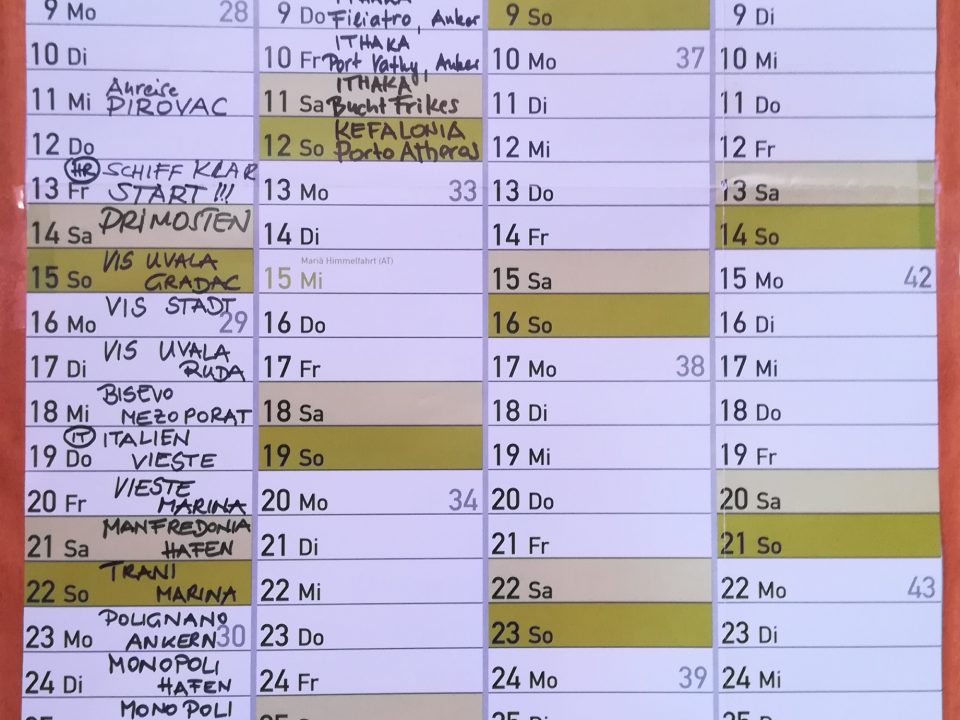 9 Mo 28
10 Di
Anreise
11 Mi PIROVAC
12 Do
HR SCHIFF KLAR
13 Fr START !!!
14 Sa PRIMOSTEN
VIS UVALA
15 So GRADAC
VIS STADT
16 Mo 29
VIS UVALA
17 Di RUDA
BISEVO
18 Mi MEZOPORAT
IT ITALIEN
19 Do VIESTE
VIESTE
20 Fr MARINA
MANFREDONIA
21 Sa HAFEN
TRANI
22 So MARINA
POLIGNANO
23 Mo ANKERN 30
MONOPOLI
24 Di HAFEN
MONOPOLI
9 Do Filiatro, Anker
ITHAKA
10 Fr Port Vathy, Anker
ITHAKA
11 Sa Bucht Frikes
KEFALONIA
12 So Porto Atheras
13 Mo 33
14 Di
Mariä Himmelfahrt (AT)
15 Mi
16 Do
17 Fr
18 Sa
19 So
20 Mo 34
21 Di
22 Mi
23 Do
24 Fr
9 So
10 Mo 37
11 Di
12 Mi
13 Do
14 Fr
15 Sa
16 So
17 Mo 38
18 Di
19 Mi
20 Do
21 Fr
22 Sa
23 So
24 Mo 39
25 Di
9 Di
10 Mi
11 Do
12 Fr
13 Sa
14 So
15 Mo 42
16 Di
17 Mi
18 Do
19 Fr
20 Sa
21 So
22 Mo 43
23 Di
24 Mi
25 Do